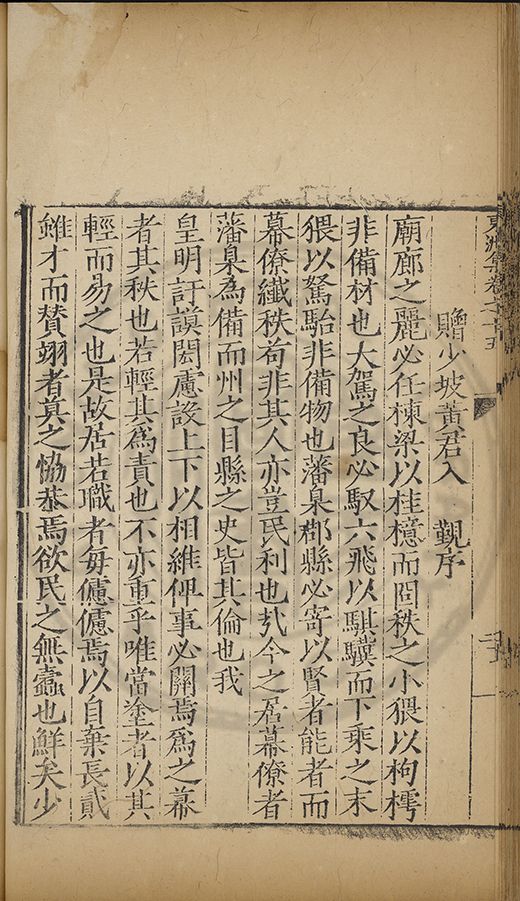 東洲集卷之十五
贈少坡黃君入　覲序
廟廊之麗必任棟梁以桂檍而囧秩之小猥以枸樗
非備材也大駕之良必馭六飛以騏驥而下乘之末
猥以駑駘非備物也藩臬郡縣必寄以賢者能者而
幕僚纖秩苟非其人亦豈民利也哉今之居幕僚者
藩臬為備而州之目縣之史皆其倫也我
皇明訏謨閎慮設上下以相維俾事必關焉爲之幕
者其秩也若輕其爲責也不亦重乎唯當塗者以其
輕而易之也是故居若職者每儢儢焉以自棄長貳
雖才而贊翊者莫之恊恭焉欲民之無蠹也鮮矣少